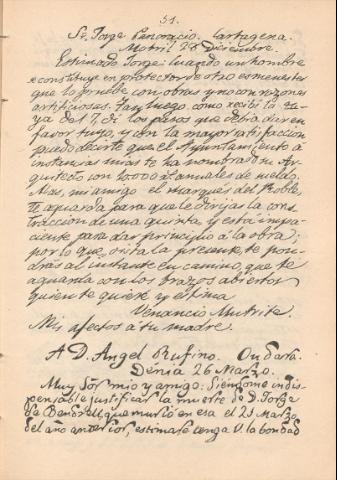 51.
Sr. Jorge Pancracio. Cartagena.
Motril 28 Diciembre.
Estimado Jorge: cuando un hombre
se constituye en protector de otro es menester
que lo pruebe con obras y no con razones
artificiosas. Tan luego como recibí la tu-
ya del 7, dí los pasos que debía dar en
favor tuyo, y con la mayor satisfacción
puedo decirte que el Ayuntamiento á
instancias mías te ha nombrado su Ar-
quitecto con 10.000 rs. anuales de sueldo.
Mas, mi amigo el marqués del Roble,
te aguarda para que le dirijas la cons-
trucción de una quinta, y está impa-
ciente para dar principio á la obra;
por lo que, vista la presente, te pon-
drás al instante en camino, que te
aguarda con los brazos abiertos
quien te quiere y estima
Venancio Mutrite.
Mis afectos á tu madre.
A D. Angel Rufino. Ondara.
Dénia 26 Marzo.
Muy Sor mío y amigo: Siéndome indis-
pensable justificar la muerte de D. Jorge
de Bendrell, que murió en esa el 23 Marzo
del año anterior, estimaré tenga V. la bondad